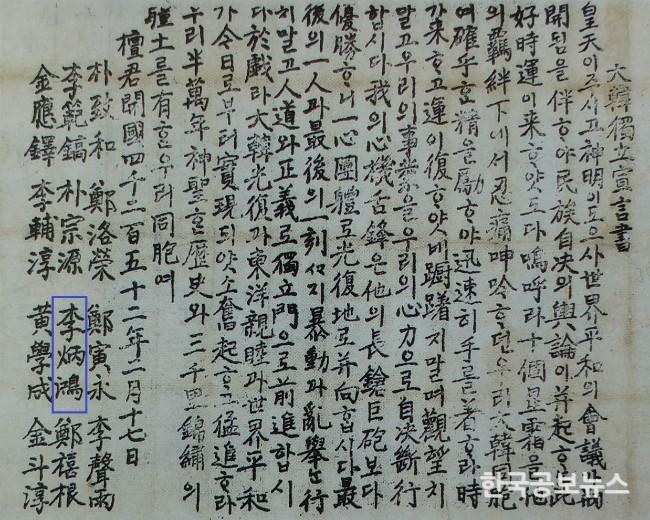 大韓獨立宣言書
皇天이주시고神明이도으사世界平和의會議가
開됨을伴ᄒᆞ야民族自決의輿論이幷起ᄒᆞ니此
好時運이来ᄒᆞ얏도다嗚呼라十個星霜을他
의羈絆下에서忍痛呻吟ᄒᆞ던우리大韓同胞
여確乎ᄒᆞᆫ精을勵ᄒᆞ야迅速히手를着ᄒᆞ라時
가来ᄒᆞ고運이復ᄒᆞ얏네躕躇지말며觀望치
말고우리의事業을우리의心力으로自決斷行
합시다我의心機舌鋒은他의長鎗巨砲보다
優勝ᄒᆞ니一心團體로光復地로幷向합시다最
後의一人과最後의一刻ᄭᆞ지暴動과亂擧는行
치말고人道와正義로獨立門으로前進합시
다於戲라大韓光復과東洋親睦과世界平和
가今日로부터實現되얏소奮起ᄒᆞ고猛進ᄒᆞ라
우리半萬年神聖ᄒᆞᆫ歷史와三千里錦繡의
疆土를有ᄒᆞᆫ우리同胞여
檀君開國四千二百五十二年二月十七日
朴致和 鄭洛榮 鄭寅永 李聲雨
李範鎬 朴宗源 李炳鴻 鄭禧根
金應鐸 李輔淳 黃學成 金斗淳
한국공보뉴스